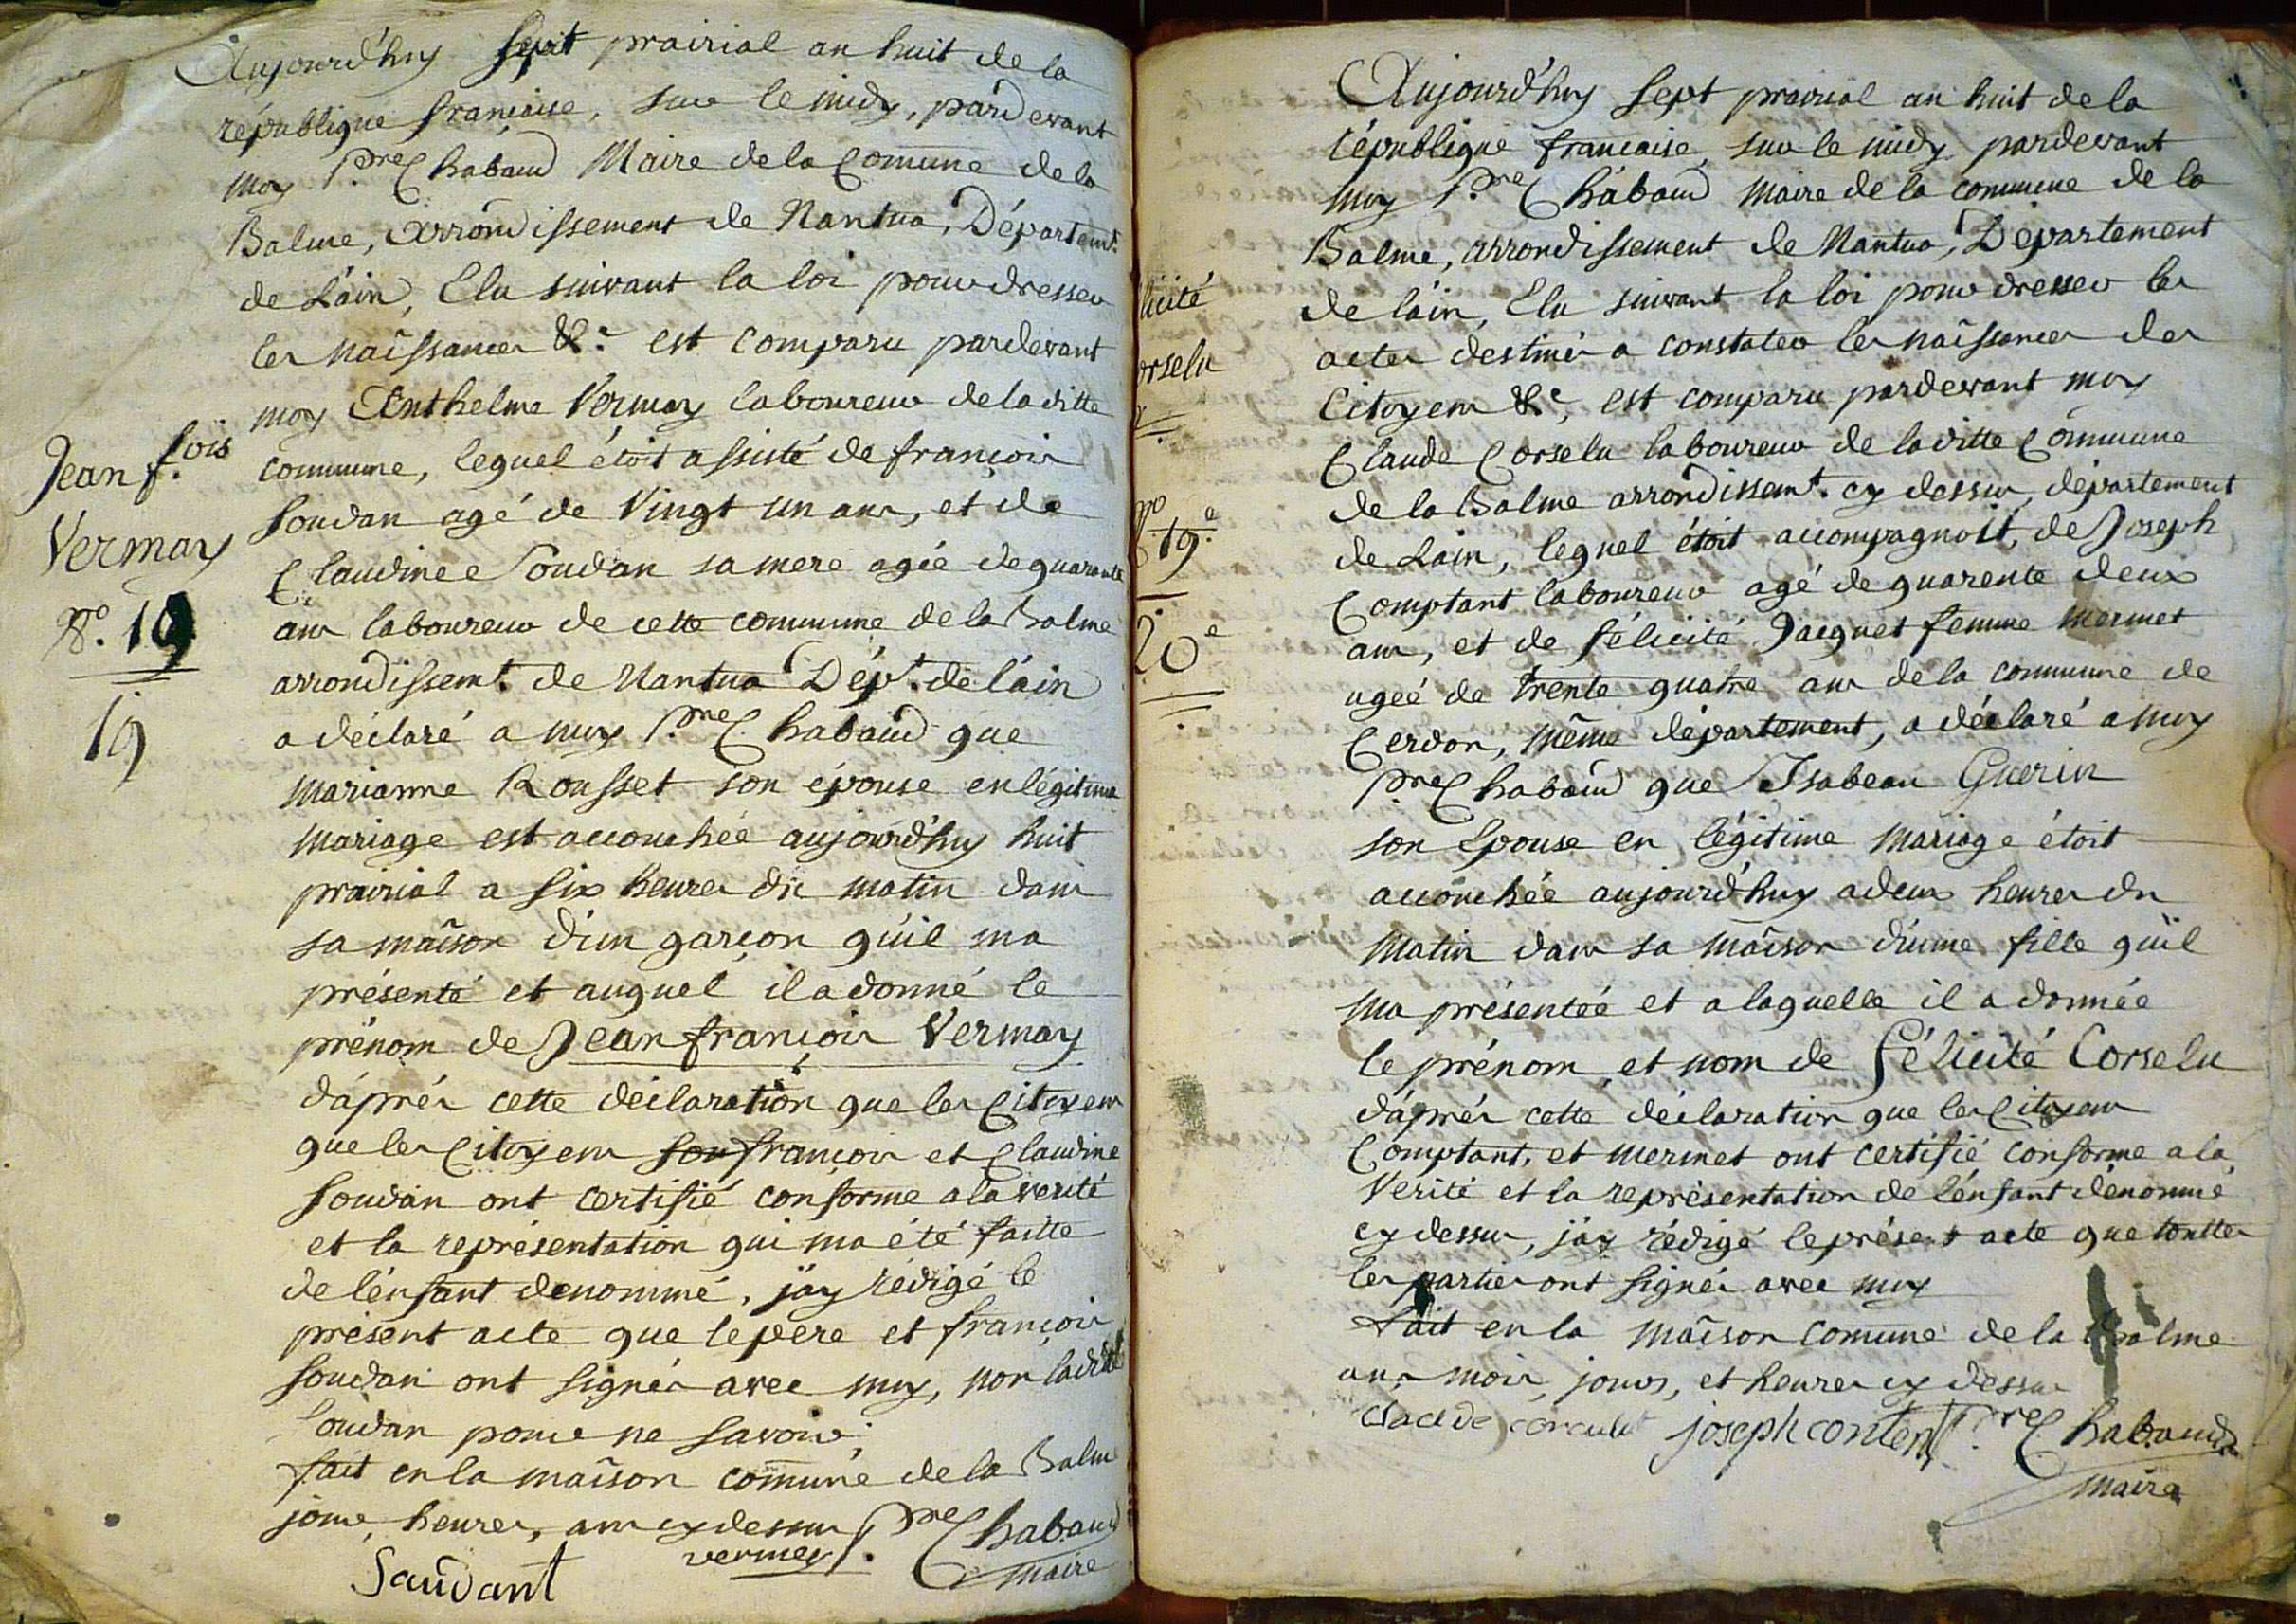 Aujourd'huy sept prairial an huit de la
république françoise, sur le midy, pardevant
moy Pre Chabaud Maire de la Comune de la
Balme, arrondissement de Nantua, Départemt.
de L'ain, Elu suivant la loi pour dresser
les naissances &a est comparu pardevant
moy Anthelme Vermay laboureur de la ditte
commune, lequel étoit assisté de françois
Soudan agé de Vingt un ans, et de
Claudine Soudan sa mere agée de quarante
ans laboureur de cette commune de la Balme
arrondissemt. de Nantua Dépt. de l'ain
a déclaré a moy Pre Chabaud que
Marianne Rousset son épouse en légitime
mariage est accouchée aujourd'huy huit
prairial a six heures du matin dans
sa maison d'un garçon qu'il ma
présenté et auquel il a donné le
prénom de Jean françois Vermay
d'après cette déclaration que les Citoyens
que les Citoyens Sou françois et Claudine
Soudan ont certifié conforme a la verité
et la représentation qui ma été faitte
de l'enfant denommé, j'ay rédigé le
présent acte que le pere et françois
Soudan ont signés avec moy, non la ditte
Soudan pour ne savoir,
fait en la maison comune de la Balme
jour, heures, ans cy dessus Pre Chabaud
Saudant vermey maire
Jean f.ois
Vermay
No. 19
19
licité
orselu
No 19e
20e
Aujourd'huy Sept prairial an huit de la
république francaise, sur le midy pardevant
moy Pre Chabaud Maire de la commune de la
Balme, arrondissement de Nantua, Département
de l'ain, Elu suivant la loi pour dresser les
actes destinés a constater les naissances des
Citoyens &c, est comparu pardevant moy
Claude Corselu laboureur de la ditte Commune
de la Balme arrondissemt. cy dessus, département
de Lain, lequel étoit accompagnoit, de Joseph
Comptant laboureur agé de quarente deux
ans, et de félicité Jacquet femme Mermet
ageé de trente quatre ans de la commune de
Cerdon, même département, a déclaré a moy
Pre Chabaud que Isabeau Guerin
son Epouse en légitime Mariage étoit
accouchée aujourd'huy a deux heures du
Matin dans sa Maison d'une fille qu'il
ma présenteé et a laquelle il a donnée
le prénom et nom de félicité Corselu
d'après cette déclaration que les Citoyens
Comptant, et Mermet ont certifié conforme a la
Verité et la représentation de l'enfant dénommé
cy dessus, j'ay rédigé le présent acte que touttes
les parties ont signés avec moy
fait en la Maison comune de la Balme
ans mois, jours, et heures cy dessus
joseph content Pre Chabaud
Maire